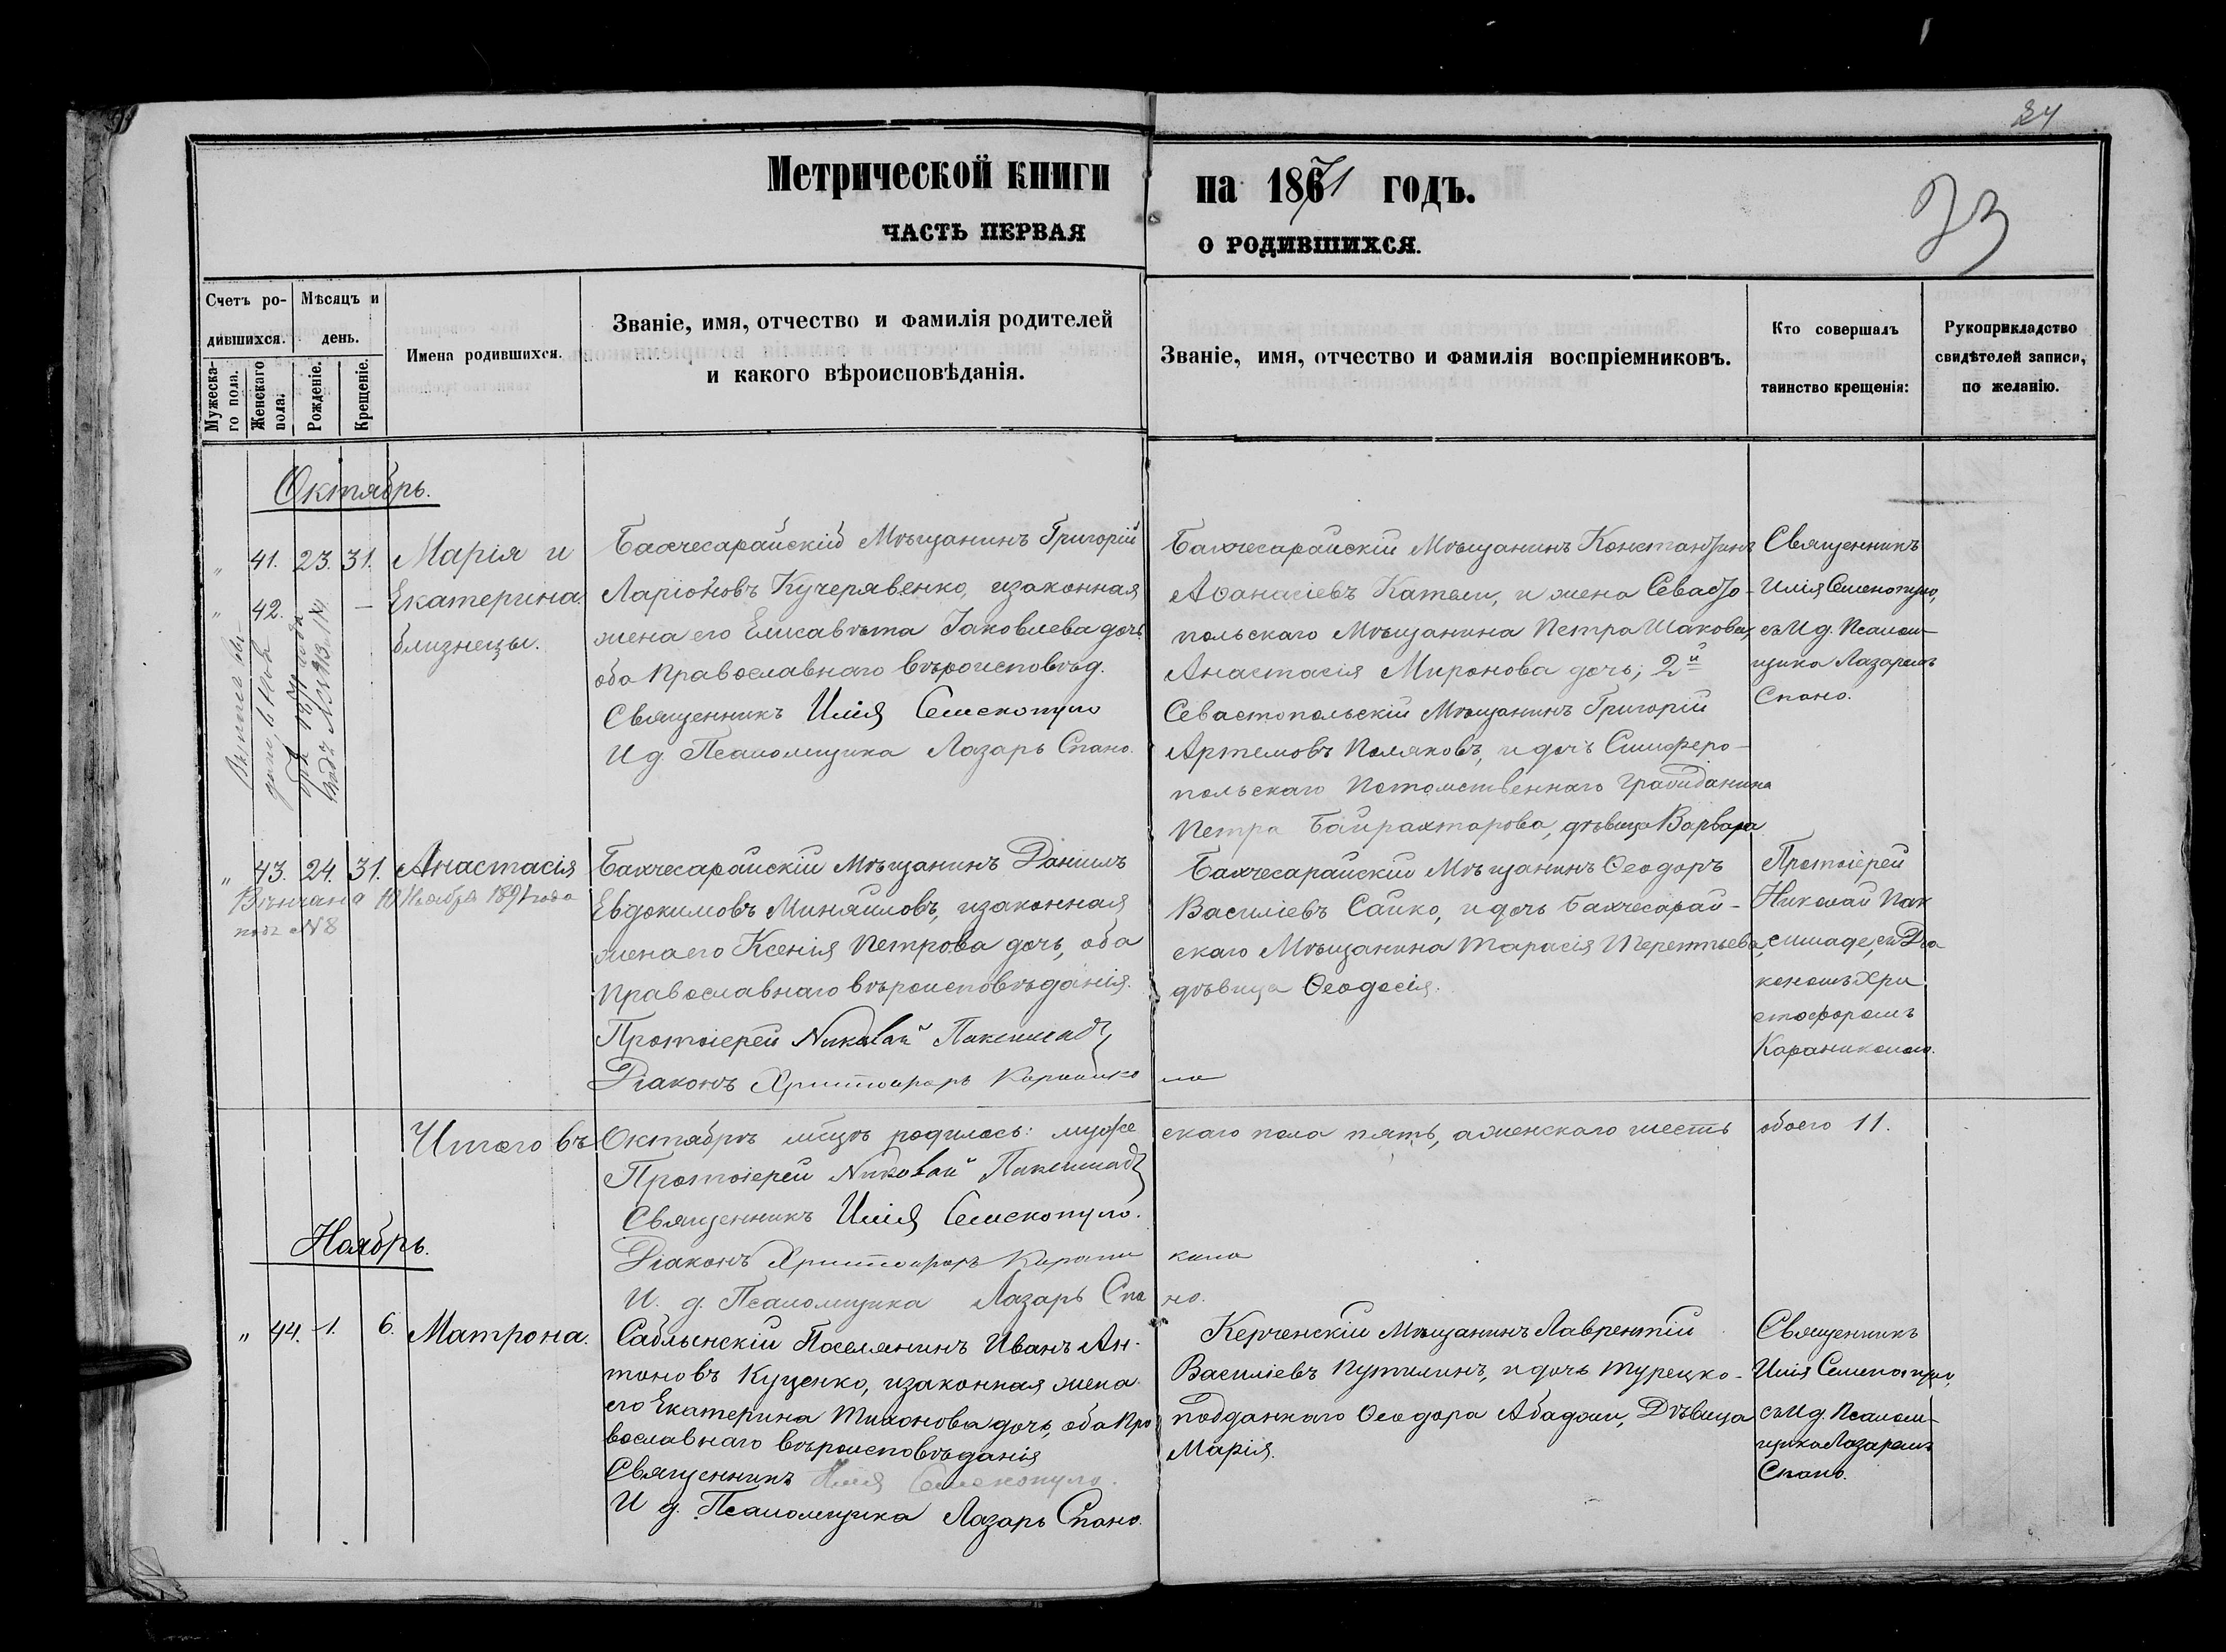 24
73
Метрической книги на 1871 годъ.
ЧАСТЬ ПЕРВАЯ О РОДИВШИХСЯ.
Счетъ ро-
дившихся.
Мужеска-
го пола.
Женскаго
пола.
Мѣсяцъ и
день.
Рожденіе.
Крещеніе.
Имена родившихся.
Званіе, имя, отчество и фамилія родителей
и какого вѣроисповѣданія.
Званіе, имя, отчество и фамилія воспріемниковъ.
Кто совершалъ
таинство крещенія:
Рукоприкладство
свидѣтелей записи,
по желанію.
Октябрь.
" 41. 23. 31. Марія и
" 42. — Екатерина.
близнецы.
Бахчесарайскій Мѣщанинъ Григорій
Ларіоновъ Кучерявенко, изаконная
жена его Елисавѣта Іаковлева дочь
оба Православнаго вѣроисповѣд.
Священникъ Илія Семскопуло
И д. Псаломщика Лазарь Спано.
Бахчесарайскій Мѣщанинъ Константинъ
Аѳанасіевъ Катели, и жена Севасто-
польскаго Мѣщанина Петра Шакова,
Анастасія Миронова дочь; 2й
Севастопольскій Мѣщанинъ Григорій
Артемовъ Поляковъ, и дочь Симферо-
польскаго Потомственнаго Гражданина
Петра Байрахтарова, дѣвица Варвара
Священникъ
Илія
съ И д. Псалом-
щика Лазаремъ
Спано.
" 43. 24. 31. Анастасія
Вѣнчана 10 Ноября 1891 года
подъ №8
Бахчесарайскій Мѣщанинъ Даніилъ
Евдокимовъ Миняиловъ, изаконная
жена его Ксенія Петрова дочь, оба
Православнаго вѣроисповѣданія.
Протоіерей Николай
Діаконъ Христофоръ Каранико
ло
Бахчесарайскій Мѣщанинъ Ѳеодоръ
Василіевъ Сайко, и дочь Бахчесарай-
скаго Мѣщанина Тарасія Терентьева,
дѣвица Ѳеодосія.
Протоіерей
Николай Пак
съ Діа
кономъ Хри
стофоромъ
Караниколо.
Итого въ Октябрѣ мѣсцѣ родилось: муже скаго пола пять, а женскаго шесть обоего 11.
Протоіерей Николай
Священникъ Илія Семскопуло.
Діаконъ Христофоръ Карани кола
И. д. Псаломщика Лазарь Спа но.
Ноябрь.
" 44. 1. 6. Матрона.
Саблынскій Поселянинъ Иванъ Ан-
тоновъ Куценко, изаконная жена
его Екатерина Тихонова дочь, оба Пра
вославнаго вѣроисповѣданія
Священникъ Илія Семскопуло.
И д. Псаломщика Лазарь Спано.
Керченскій Мѣщанинъ Лаврентій
Василіевъ Путилинъ, и дочь Турецко-
подданнаго Ѳеодора Абаджи, Дѣвица
Марія.
Священникъ
Илія
съ И д. Псалом-
щика Лазаремъ
Спано.